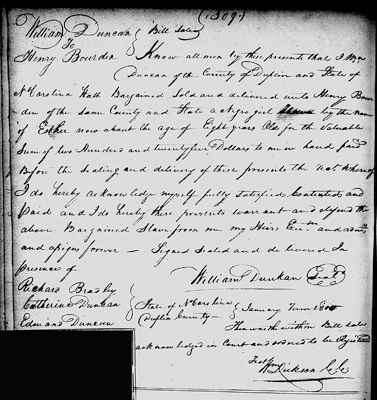 (1309)
William Duncan } Bill Sale
To
Henry Bourden } Know all men by these presents that I Wm
Duncan of the County of Duplin and State of
N Carolina Hath Bargained Sold and delivered unto Henry Bour
den of the same County and State a Negro girl by the name
of Esther now about the age of Eight years Old for the Valuable
Sum of two Hundred and twentyfive Dollars to me in hand paid
Before the Sealing and delivery of these presents the Rect whereof
I do hereby acknowledge myself fully satisfied Contented and
Paid and I do hereby these presents warrant and defend the
above Bargained Slave from me my Heirs Exr and adm
and assigns forever — Signed Sealed and delivered In
presence of
William Dunkan Seal
Richard Bradley
Catherine Duncan
Edmond Duncan
State of N Carolina
Duplin County
January Term
Then within Bill Sale
acknowledged in Court and ordered to be Registered
Test
Wm Dickson